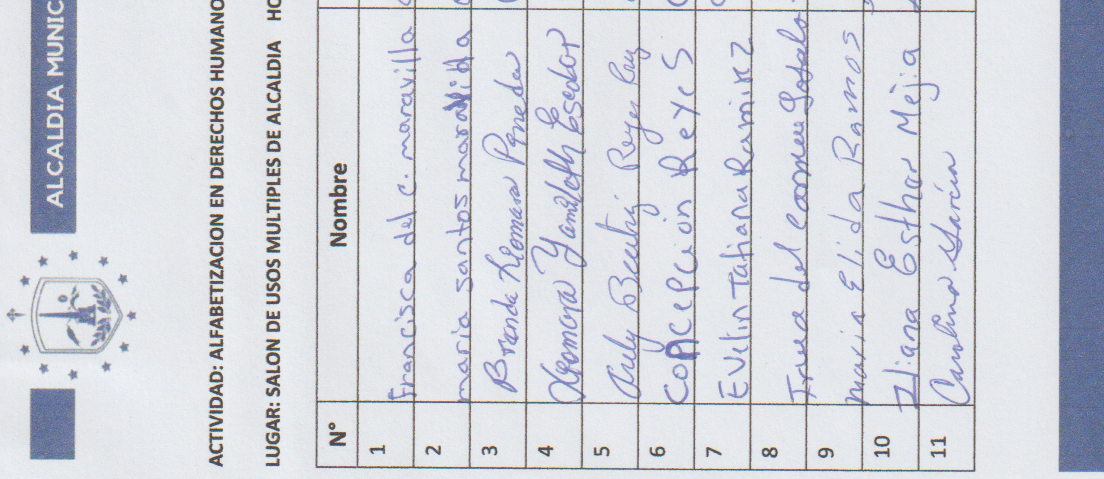 ALCALDIA MUNIC
ACTIVIDAD: ALFABETIZACION EN DERECHOS HUMANO
LUGAR: SALON DE USOS MULTIPLES DE ALCALDIA HO
N° Nombre
1 Francisca del C. maravilla
2 maria santos maravilla
3 Brenda Xiomara Pineda
4 Xiomara Yamileth Escobar
5 Reyes
6 Concepcion Reyes
7 Evelin Tatiana Ramirez
8 Irma del Carmen
9 Maria Elida Ramos
10 Iliana Esther Mejia
11 Carolina Garcia